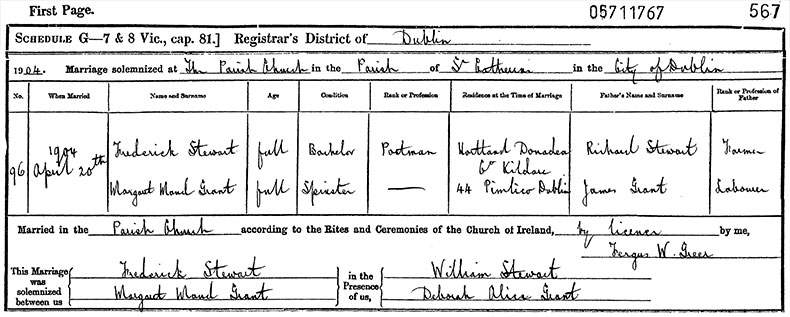 First Page. 05711767 567
SCHEDULE G—7 & 8 Vic., cap. 81.] Registrar's District of Dublin
1904. Marriage solemnized at The Parish Church in the Parish of St Catherine in the City of Dublin
No. When Married Name and Surname Age Condition Rank or Profession Residence at the Time of Marriage Father's Name and Surname Rank or Profession of Father
96 1904 April 20th Frederick Stewart full Bachelor Postman Donadea Co Kildare Richard Stewart Farmer
Margaret Maud Grant full Spinster — 44 Pimlico Dublin James Grant Labourer
Married in the Parish Church according to the Rites and Ceremonies of the Church of Ireland, by licence by me,
Fergus W. Greer
This Marriage was solemnized between us Frederick Stewart in the Presence of us, William Stewart
Margaret Maud Grant Deborah Alice Grant